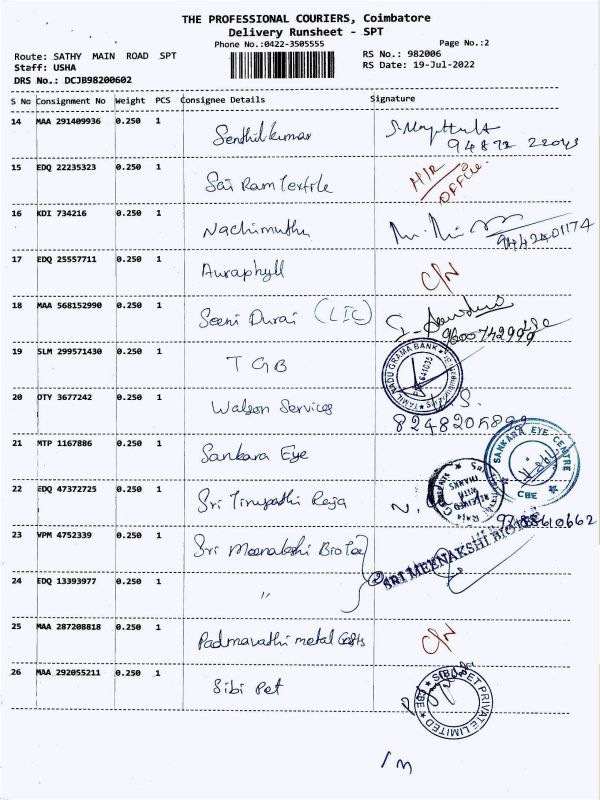 THE PROFESSIONAL COURIERS, Coimbatore
Delivery Runsheet - SPT
Phone No.:0422-3505555 Page No.:2
Route: SATHY MAIN ROAD SPT RS No.: 982006
Staff: USHA RS Date: 19-Jul-2022
DRS No.: DCJB98200602
S No Consignment No Weight PCS Consignee Details Signature
14 MAA 291409936 0.250 1 Senthilkumar
94872 22043
15 EDQ 22235323 0.250 1 Sai Ram Textile
OFFICE
16 KDI 734216 0.250 1 Nachimuthu
9442401174
17 EDQ 25557711 0.250 1 Auraphyll C/N
18 MAA 568152990 0.250 1 Seeni Durai (LIC)
9600742999
19 SLM 299571430 0.250 1 TGB
TAMIL NADU GRAMA BANK
641035
20 OTY 3677242 0.250 1 Watson Services
21 MTP 1167886 0.250 1 Sankara Eye
SANKARA EYE CENTRE
CBE
22 EDQ 47372725 0.250 1 Sri Tirupathi Raja N.
RECEIVED
WITH
THANKS
9788610662
23 VPM 4752339 0.250 1 Sri Meenakshi Biotec
SRI MEENAKSHI BIOTEC
24 EDQ 13393977 0.250 1 "
25 MAA 287208818 0.250 1 Padmavathi metal Gifts C/N
26 MAA 292055211 0.250 1 Sibi Pet
SIBI PET PRIVATE LIMITED
CBE